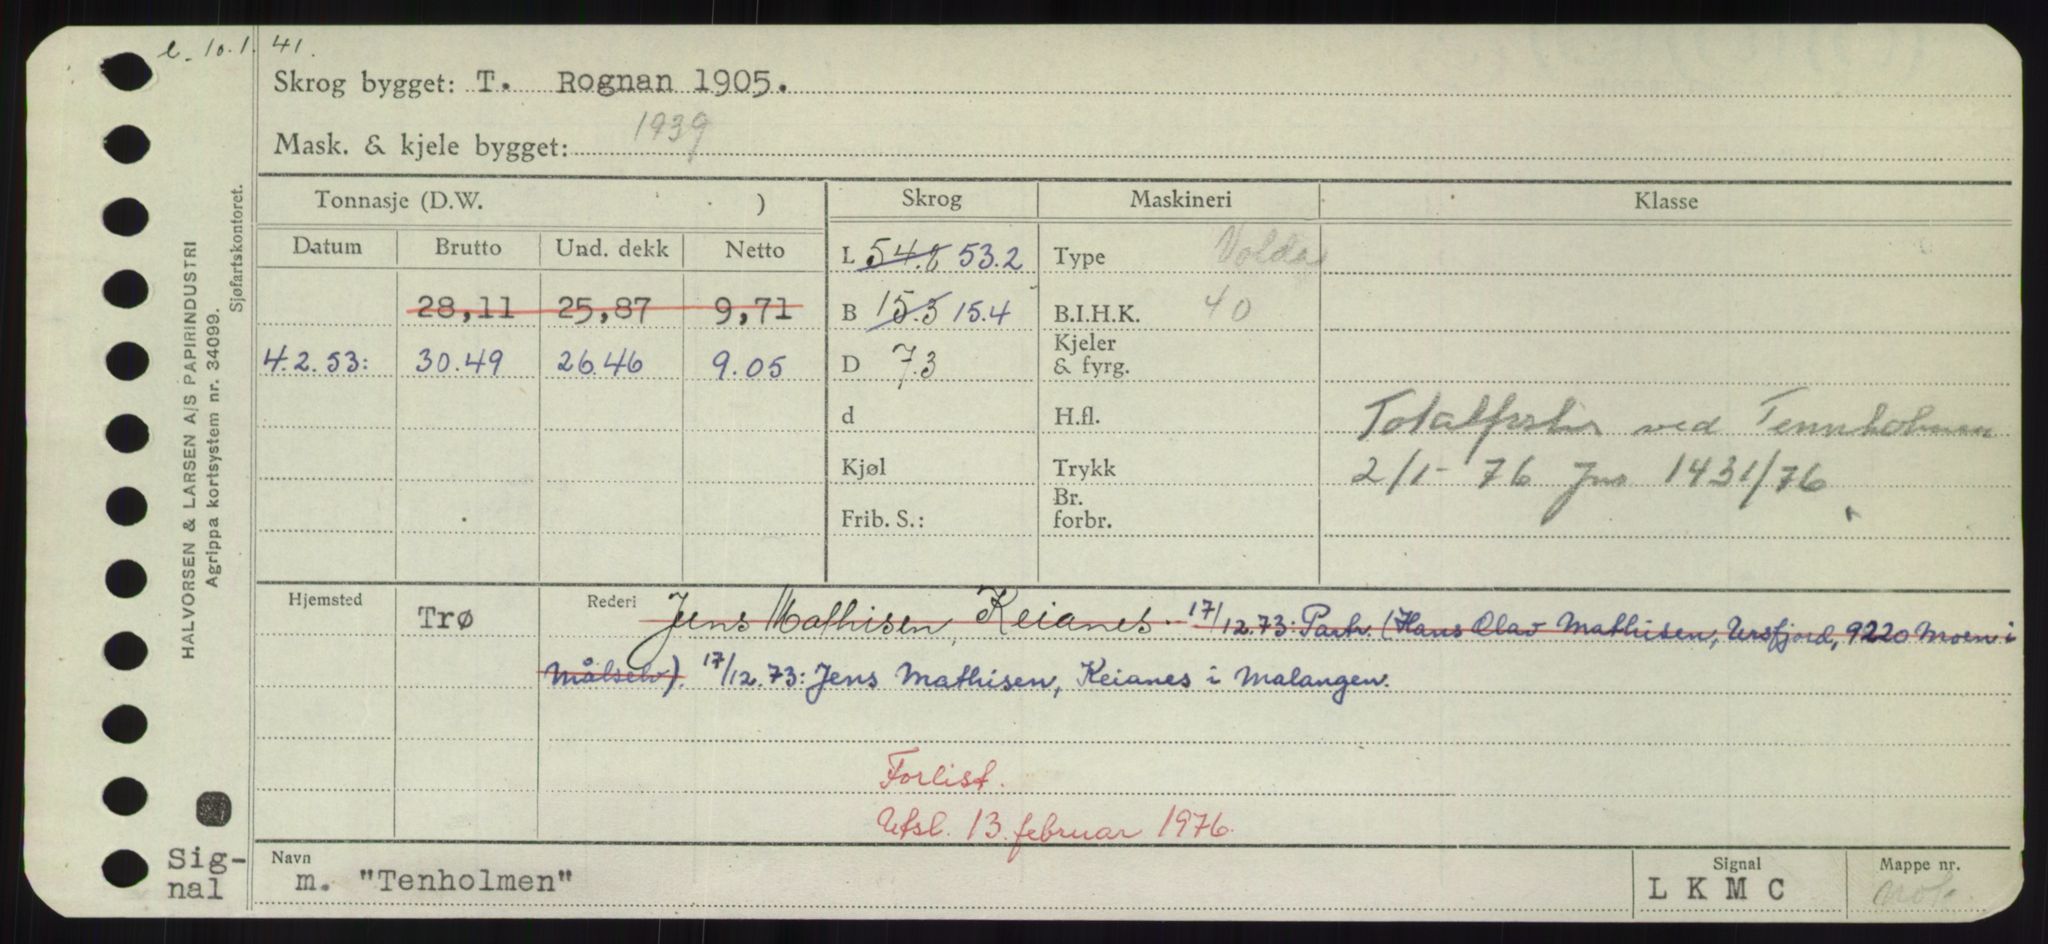 e. 10.1.41.
Skrog bygget: T. Rognan 1905.
Mask. & kjele bygget: 1939
Tonnasje (D.W. ) Skrog Maskineri Klasse
Datum Brutto Und. dekk Netto
L 54.8 53.2 Type Volda
28,11 25,87 9,71 B 15.3 15.4 B.I.H.K. 40
4.2.53: 30.49 26.46 9.05 D 7.3 Kjeler & fyrg.
d H.fl. Totalforlis ved Tennholmen
Kjøl Trykk 2/1-76 Jnr 1431/76
Frib. S.: Br. forbr.
Hjemsted Trø Rederi Jens Mathisen, Keianes. 17/12.73: Partr. (Hans Olav Mathisen, Ursfjord, 9220 Moen i
Målselv). 17/12.73: Jens Mathisen, Keianes i Malangen.
Forlist.
Utsl. 13. februar 1976.
Navn Signal Mappe nr.
m. "Tenholmen" L K M C
Sig-
nal
HALVORSEN & LARSEN A/S PAPIRINDUSTRI
Agrippa kortsystem nr. 34099.
Sjøfartskontoret.